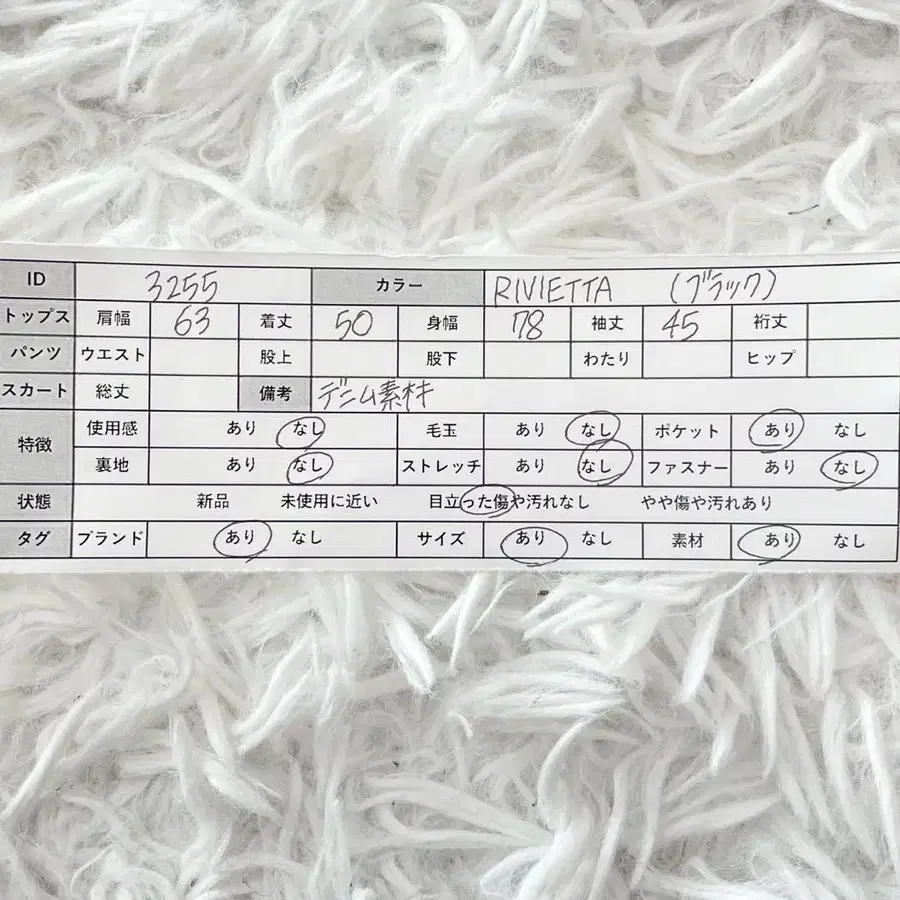 ID 3255 カラー RIVIETTA (ブラック)
トップス 肩幅 63 着丈 50 身幅 78 袖丈 45 裄丈
パンツ ウエスト 股上 股下 わたり ヒップ
スカート 総丈 備考 デニム素材
特徴 使用感 あり なし 毛玉 あり なし ポケット あり なし
裏地 あり なし ストレッチ あり なし ファスナー あり なし
状態 新品 未使用に近い 目立った傷や汚れなし やや傷や汚れあり
タグ ブランド あり なし サイズ あり なし 素材 あり なし